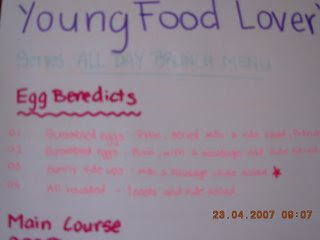 Young Food Lover'
Serves ALL DAY BRUNCH MENU
Egg Benedicts
01 Scrambled eggs - Plain, served with a side salad,
02 Scrambled eggs - with a sausage and side salad
03 Sunny side ups - with a sausage, side salad
04 All rounded - and side salad
Main Course
23.04.2007 06:07